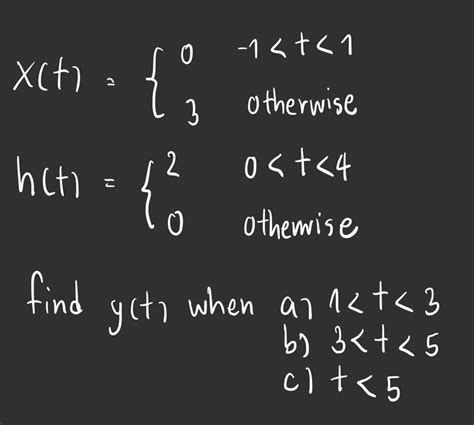 x(t) = { 0 -1 < t < 1
3 otherwise
h(t) = { 2 0 < t < 4
0 otherwise
find y(t) when a) 1 < t < 3
b) 3 < t < 5
c) t < 5